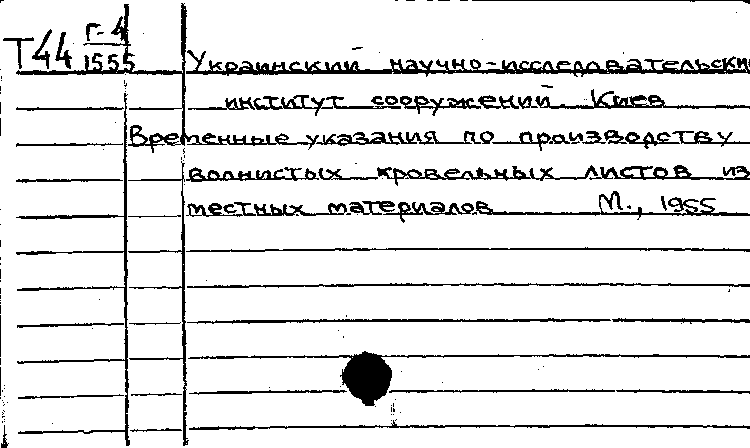 Т44 Г-4
1555
Украинский научно-исследовательски
институт сооружений. Киев
Временные указания по производству
волнистых кровельных листов из
местных материалов М., 1955